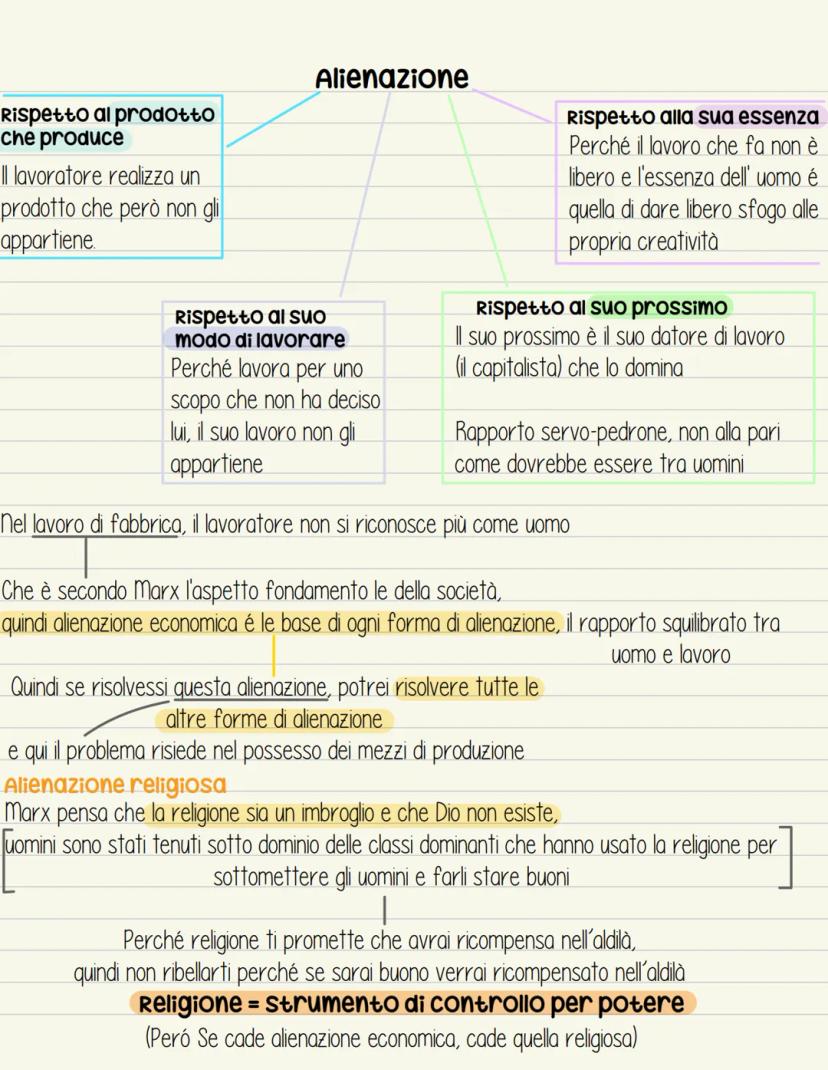 Alienazione
Rispetto al prodotto
che produce
Il lavoratore realizza un
prodotto che però non gli
appartiene.
Rispetto alla sua essenza
Perché il lavoro che fa non è
libero e l'essenza dell' uomo é
quella di dare libero sfogo alle
propria creatività
Rispetto al suo
modo di lavorare
Perché lavora per uno
scopo che non ha deciso
lui, il suo lavoro non gli
appartiene
Rispetto al suo prossimo
Il suo prossimo è il suo datore di lavoro
(il capitalista) che lo domina
Rapporto servo-pedrone, non alla pari
come dovrebbe essere tra uomini
Nel lavoro di fabbrica, il lavoratore non si riconosce più come uomo
Che è secondo Marx l'aspetto fondamento le della società,
quindi alienazione economica é le base di ogni forma di alienazione, il rapporto squilibrato tra
uomo e lavoro
Quindi se risolvessi questa alienazione, potrei risolvere tutte le
altre forme di alienazione
e qui il problema risiede nel possesso dei mezzi di produzione
Alienazione religiosa
Marx pensa che la religione sia un imbroglio e che Dio non esiste,
uomini sono stati tenuti sotto dominio delle classi dominanti che hanno usato la religione per
sottomettere gli uomini e farli stare buoni
Perché religione ti promette che avrai ricompensa nell'aldilà,
quindi non ribellarti perché se sarai buono verrai ricompensato nell'aldilà
Religione = strumento di controllo per potere
(Peró Se cade alienazione economica, cade quella religiosa)